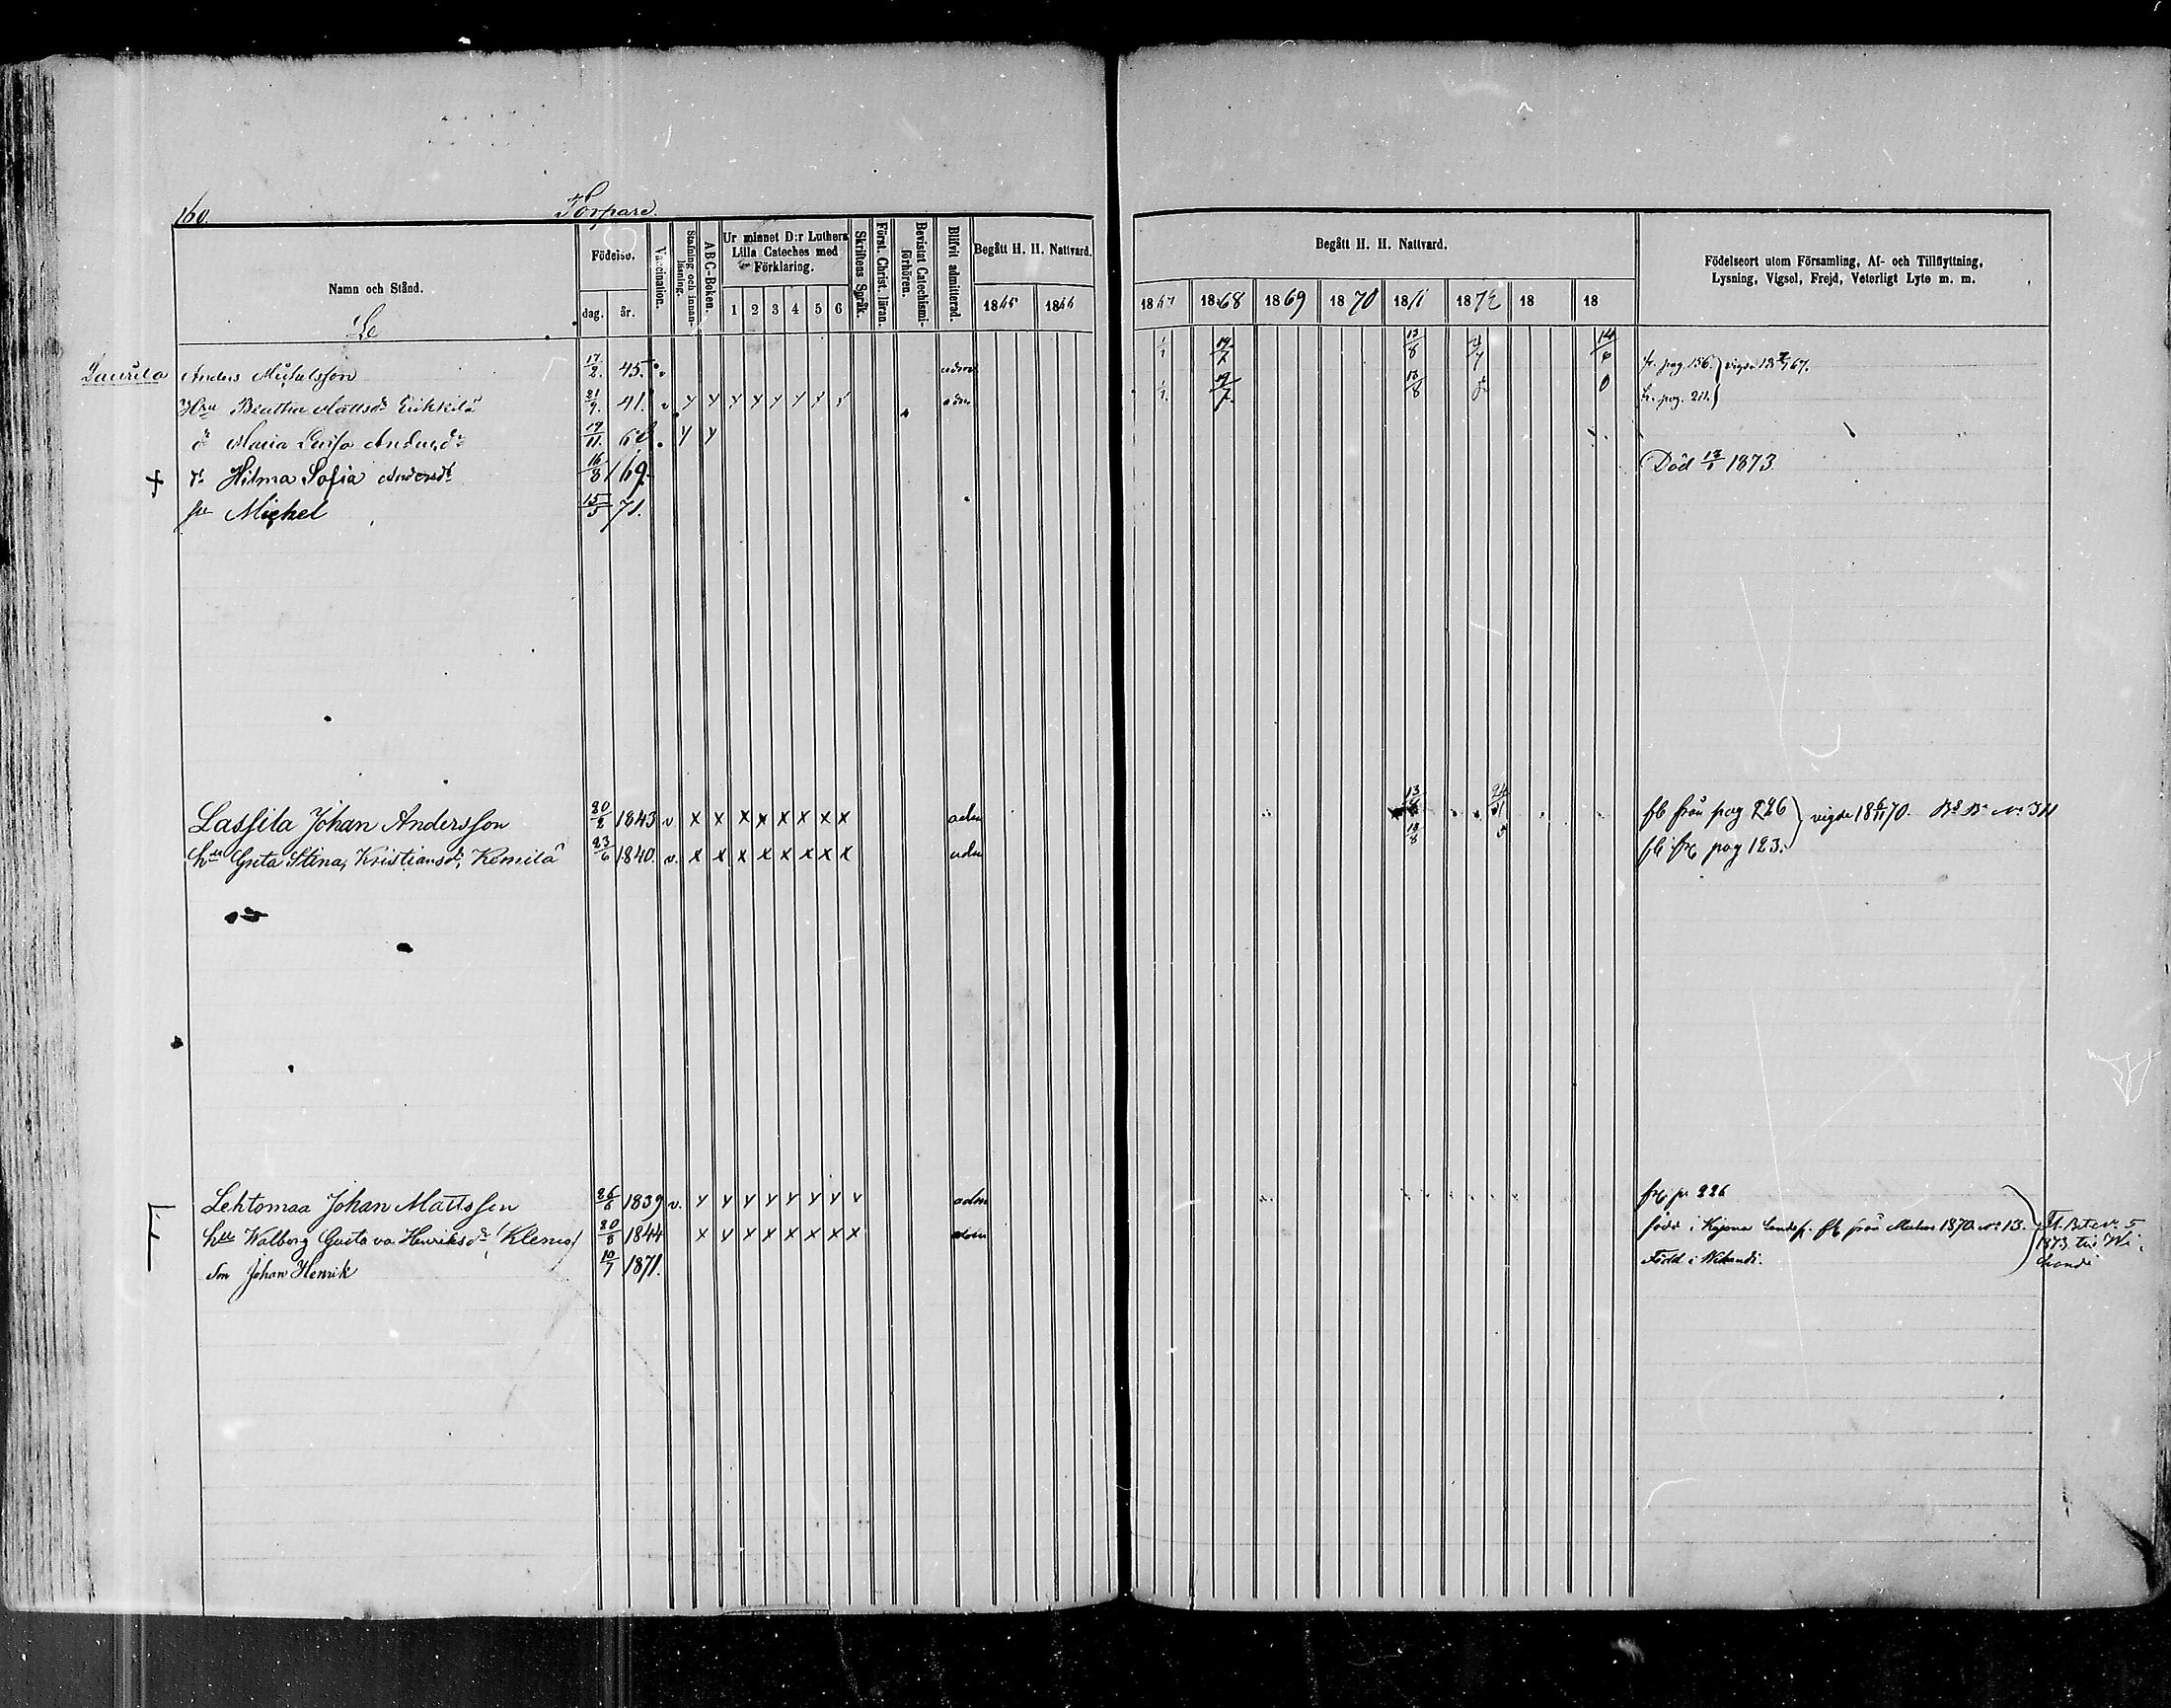 160.
Torpare.
Namn och Stånd.
Födelse.
dag.
år.
Vaccination.
Stafning och innan-läsning.
ABC-Boken.
Ur minnet D:r Luthers Lilla Cateches med Förklaring.
1 2 3 4 5 6
Skriftens Språk.
Först. Christ. läran.
Bevistat Catechismi-förhören.
Blifvit admitterad.
Begått H. H. Nattvard.
1865 1866
Begått H. H. Nattvard.
1867 1868 1869 1870 1871 1872 18 18
Födelseort utom Församling, Af- och Tillflyttning,
Lysning, Vigsel, Frejd, Veterligt Lyte m. m.
Laurila Anders Michelsson 17/2. 45. v adm 1/1 19/7 13/8 fr. pag 156.
Hru Beatha Mattsdr 21/9. 41. v y y y y y y y y adm 1/1. 19/7 13/8 0 fr. pag. 211.
dr Maria Lovisa Andersdr 19/11. y y
+ dr Hilma Sofia Andersdr 16/8 69. Död 13/1 1873
sn Michel 15/5 71.
Lassila Johan Andersson 20/2 1843 v x x x x x x x x adm 13/8 fb från pag 226 vigde 18 6/11 70.
hru Greta Stina, Kristiansdr, Kemilä 23/6 1840. v. x x x x x x x x adm 13/8 fb frx pag 123.
Lehtomaa Johan Mattsson 26/8 1839 v. y y y y y y y y adm frx p. 226
hru Walborg Gustava Henriksdr 20/8 1844 x y y y y y x x adm född i Kajana Landsf. från 1870 no 13.
Son Johan Henrik 10/7 1871. Född i Wihandi.
1873 till Wi-
handi